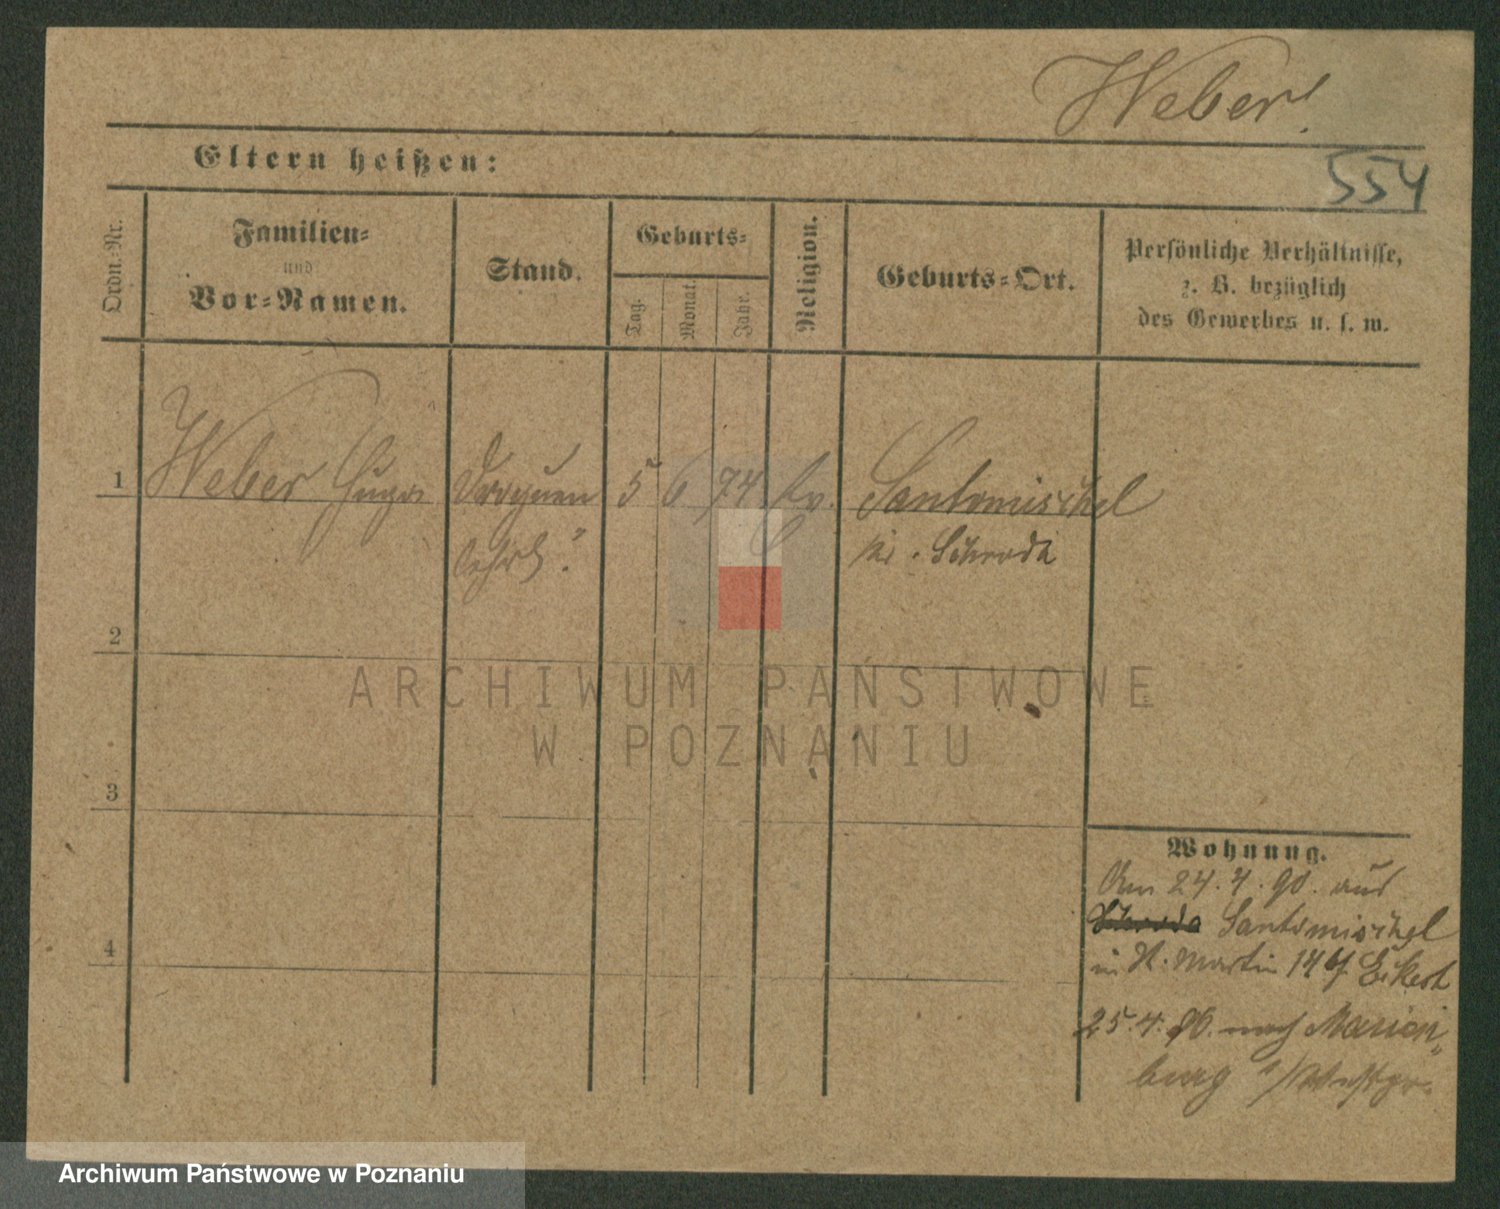 Weber
554
Eltern heißen:
Ordn.-Nr.
Familien-
und
Vor-Namen.
Stand.
Geburts-
Tag.
Monat.
Jahr.
Religion.
Geburts-Ort.
Persönliche Verhältnisse,
z. B. bezüglich
des Gewerbes u. s. w.
1
Weber Hugo
Droguen
lehrl.
5
6
74
Ev.
Santomischel
Kr. Schroda
2
3
4
Wohnung.
Am 24.4.90. aus
Schroda Santomischel
in St. Martin 14
25.4.90. nach Marien-
burg /Westpr.
ARCHIWUM PAŃSTWOWE
W POZNANIU
Archiwum Państwowe w Poznaniu